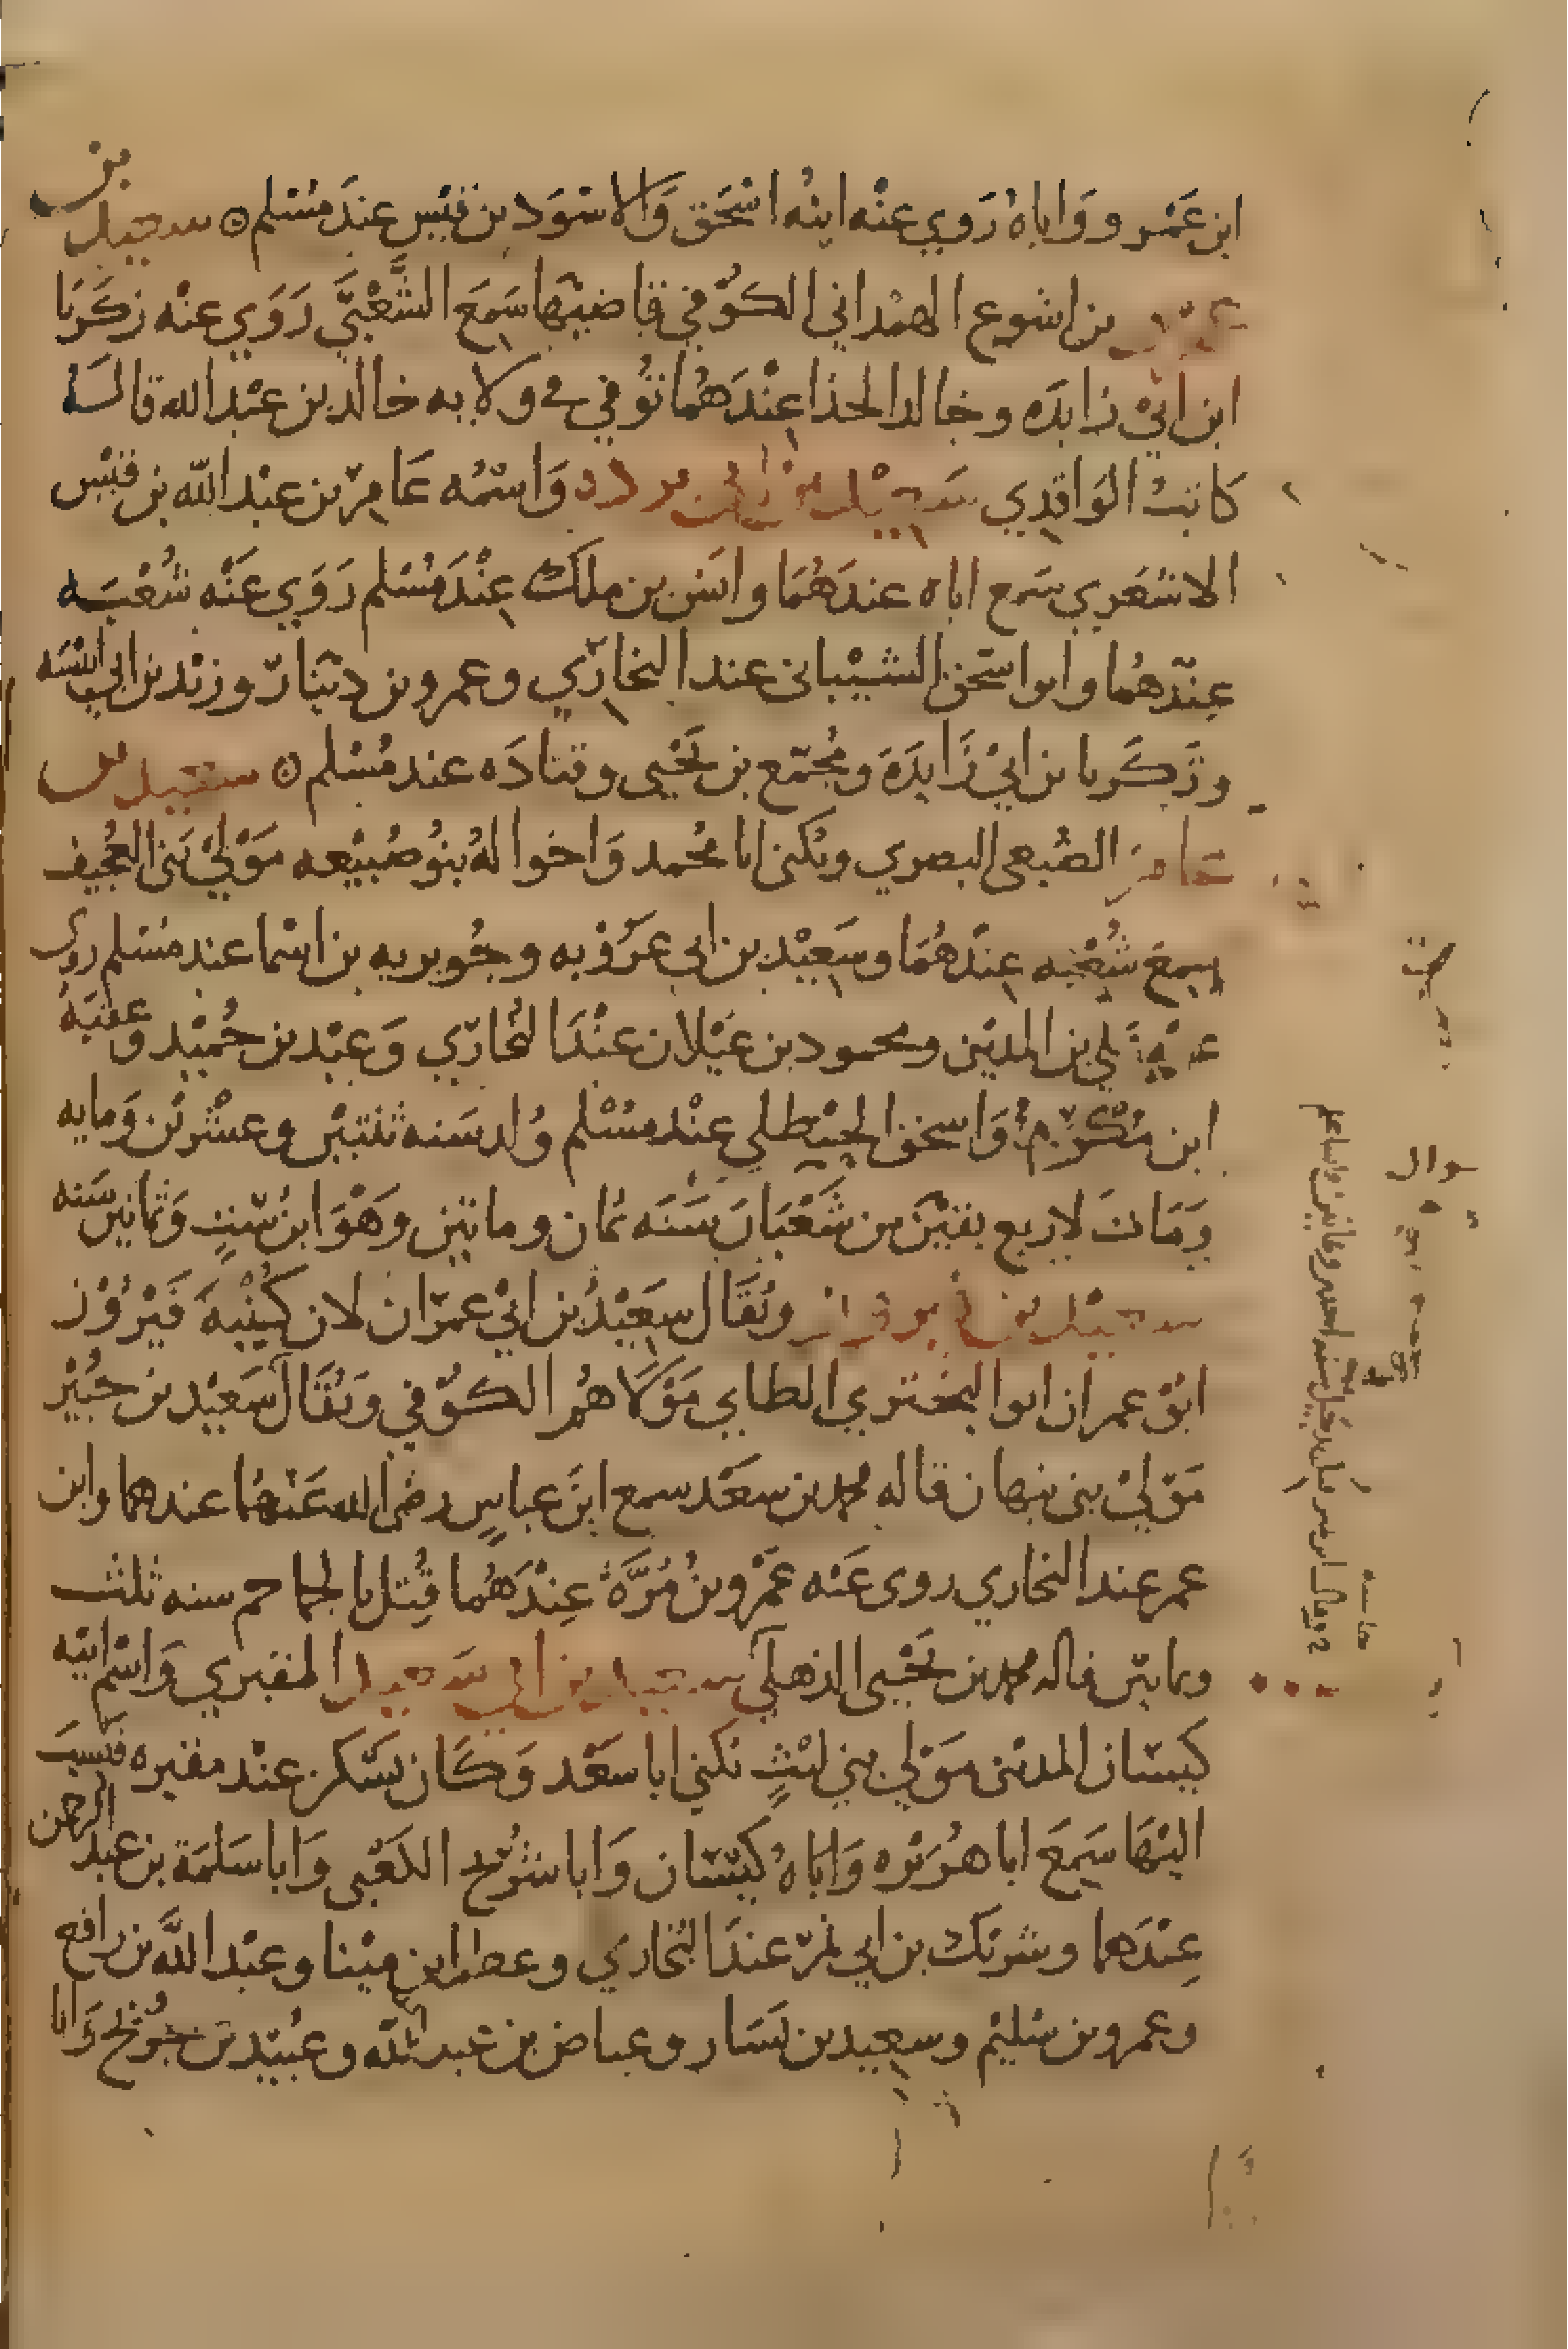 ابن عَمْرو وَاباهُ رَوي عنْه ابنُه اسْحَق وَالاسْوَد بن قيْس عندَ مُسْلم ⊙ سعيد بن
عمرو بن اشوع الهمْداني الكوْفي قاضيْها سَمعَ الشَّعْبيَّ رَوَي عنْه زكَريَا
ابن ابيْ زايدَه وخالد الحذا عِنْدَهُما توُفي في ولايه خالد بن عبْدالله قالهُ
كاتبُ الوَاقدِي سَعيْد بن ابي بردة وَاسْمُه عَامِرْ بن عبْدالله بن قيْس
الاشعَري سَمع اباه عندَهُمَا وانَس بن ملك عِنْدَ مُسْلم رَوَي عَنْه شُعْبَه
عِنْدَهُما وابو اسْحَق الشيْبانى عند البخارّي وعمرو بن ديْنارّ وزيْد بن ابي انيْسَه
وزَكَريا بن ابيْ زَايدَهَ ومُجمّع بن يَحْيى وقتادَه عند مُسْلم ⊙ سعيد بن
عامرْ الضُبعى البصري ويُكنى ابا محُمد وَاخوالهُ بنوُ ضُبيْعه مَوْليْ بَنى العُجيْف
سمعَ شُعْبه عِندَهُمَا وسَعِيْد بن ابى عَرُوْبه وجُويريه بن اسْما عند مُسْلم روى
عنْهُ عَلي بن المديْني ومحمود بن غيْلان عنْدَ البُخارّي وَعبْد بن حُميْد وعقبَةُ
ابن مُكْرَّم وَاسحق الحنْظلي عنْد مسْلم وُلد سَنه ثنتيْن وعشْريْن وَمايه
وَمَاتَ لاربع بقيْنَ من شَعْبَانَ سَنَه ثمان ومايتيْن وَهْوَ ابنُ سّتٍ وَثمانيْن سَنه
سعيْد بن فيروز ويُقَال سعِيْدُ بن ابيْ عمرّان لان كُنيْهَ فيْرُوْز
ابوْ عمران ابوا البختري الطايي مَوْلَاهُم الكوْفي وَيُقَال سَعيْد بن جُبيْر
مَوْليْ بنى نبهان قاله محمد بن سعَد سمع ابنَ عباسٍ رضى الله عَنْهُمَا عندهما وابن
عمر عند البخاري روى عَنْه عَمْرو بنُ مُرَّةُ عِنْدَهُما قُتل بالجماجم سنه ثلث
وثمانيْن قاله محمد بن يَحْيى الذهليّ سعيد بن ابي سَعيد المقبري وَاسْم ابيْه
كيْسَان المدنيْ مَوْلي بني ليْثٍ يكني ابا سَعْد وَكَان يسْكن عنْد مقبره فنسبَ
اليْهَا سَمِعَ ابا هُريْره وَاباهُ كيْسَان وَابا شرُيْح الكَعْبي وَابا سَلمَة بن عبد الرحمن
عِنْدَهما وشريك بن ابي نمْر عندَ البُخاري وعطا ابن ميْنا وعبْد اللَّه بن رافع
وعمرو بن سُليْم وسعيد بن يَسَار وعياض بن عبد اللّه وعُبيْد بن جُريْج وَابا
سوال
حاشية